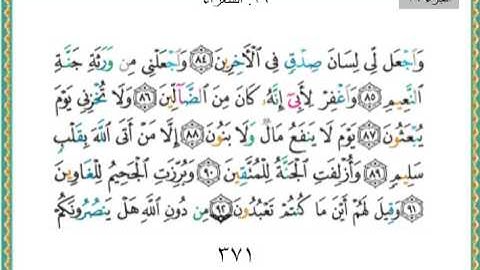 ٢٦. الشعراء
وَاجْعَل لِّي لِسَانَ صِدْقٍ فِي الْآخِرِينَ ﴿٨٤﴾ وَاجْعَلْنِي مِن وَرَثَةِ جَنَّةِ
النَّعِيمِ ﴿٨٥﴾ وَاغْفِرْ لِأَبِي إِنَّهُ كَانَ مِنَ الضَّالِّينَ ﴿٨٦﴾ وَلَا تُخْزِنِي يَوْمَ
يُبْعَثُونَ ﴿٨٧﴾ يَوْمَ لَا يَنفَعُ مَالٌ وَلَا بَنُونَ ﴿٨٨﴾ إِلَّا مَنْ أَتَى اللَّهَ بِقَلْبٍ
سَلِيمٍ ﴿٨٩﴾ وَأُزْلِفَتِ الْجَنَّةُ لِلْمُتَّقِينَ ﴿٩٠﴾ وَبُرِّزَتِ الْجَحِيمُ لِلْغَاوِينَ
﴿٩١﴾ وَقِيلَ لَهُمْ أَيْنَ مَا كُنتُمْ تَعْبُدُونَ ﴿٩٢﴾ مِن دُونِ اللَّهِ هَلْ يَنصُرُونَكُمْ
٣٧١